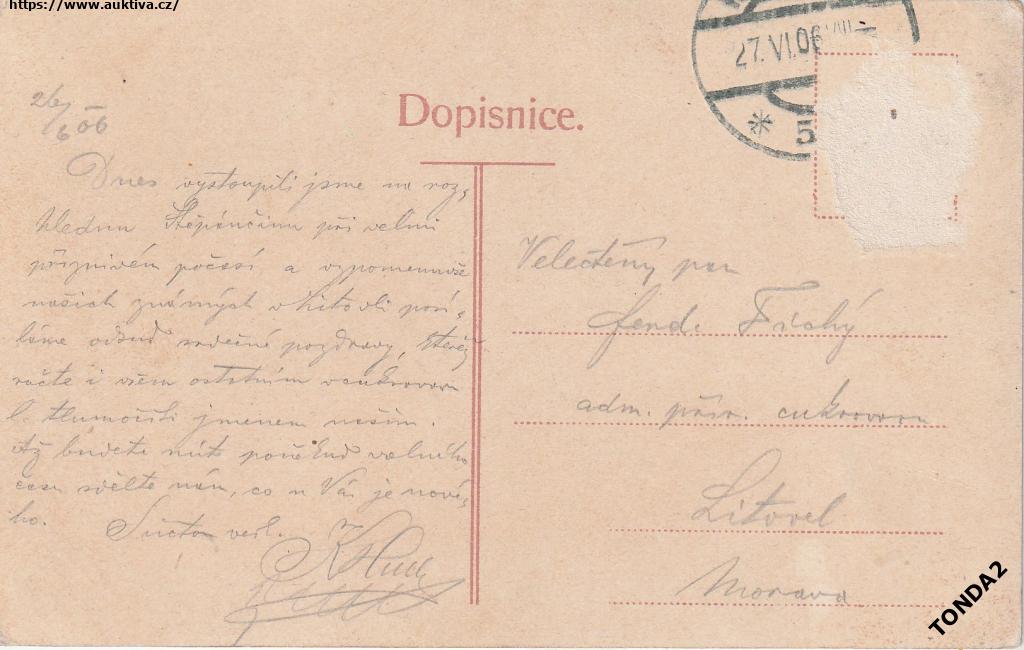 https://www.auktiva.cz/
27.VI.06
5
Dopisnice.
26/
6 06
Dnes vystoupili jsme na roz,
hlednu Štěpánčinu při velmi
příznivém počasí a vzpomenuvše
našich známých v Litovli posí,
láme odtud srdečné pozdravy, kteréž
račte i všem ostatním v cukrovaru
l. tlumočiti jmenem naším.
Až budete míti poněkud volného
času sdělte nám, co u Vás je nové,
ho. S úctou
Velectěný pan
ferd. Tichý
adm. přísr. cukrovaru
Litovel
Morava
TONDA2